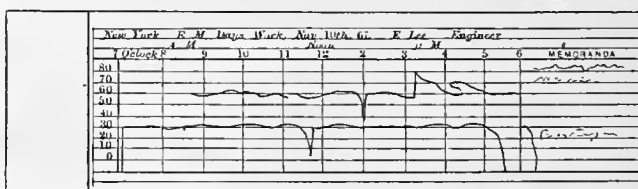 New York E. M. Days Work, Nov 10th, 61. E Lee Engineer
A M Noon P M
7 O'clock 8 9 10 11 12 1 2 3 4 5 6 MEMORANDA
80
70
60
50
40
30
20
10
0